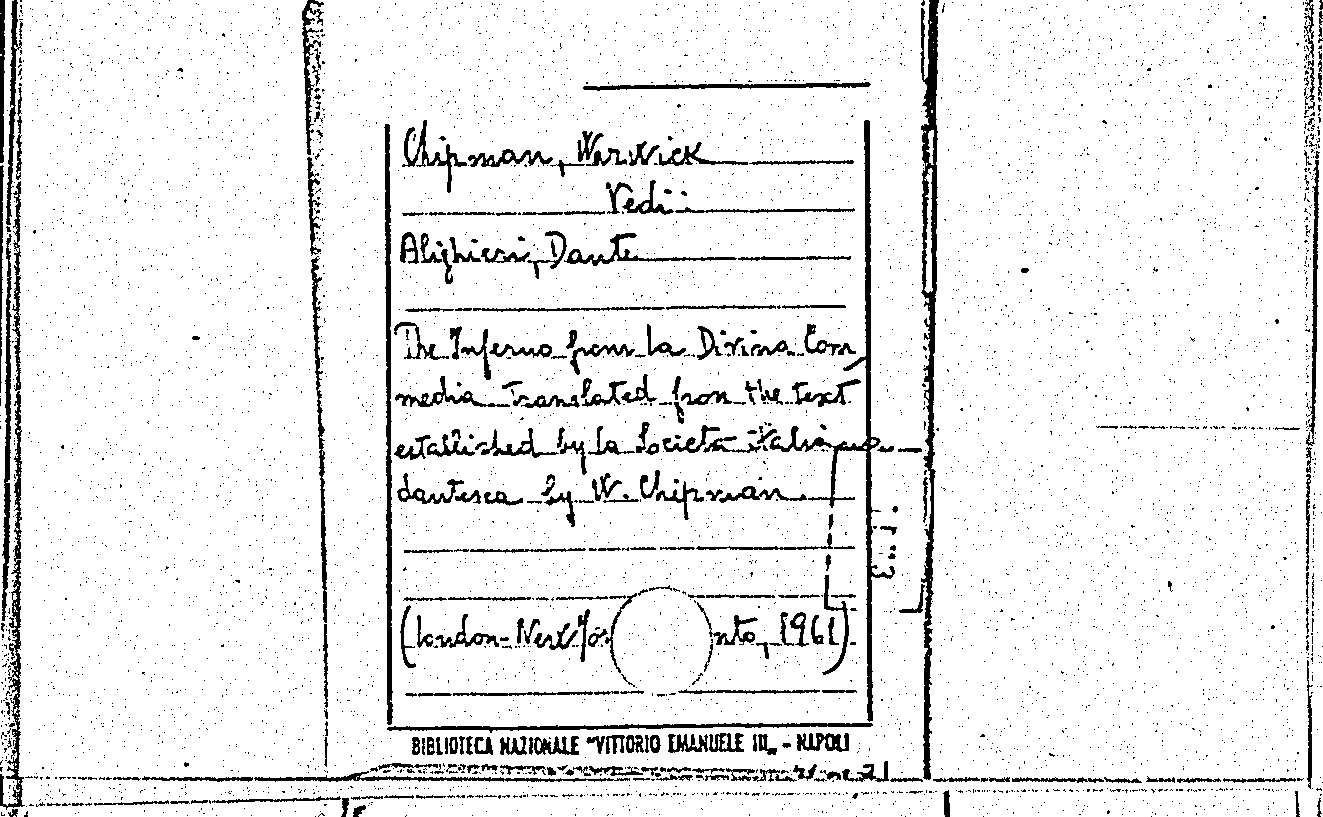 Chipman, Warwick
Vedi:
Alighieri, Dante
The Inferno from la Divina Com
media Translated from the text
established by la Società italiana
dantesca by W. Chipman.
(London-New Yor nto, 1961)
BIBLIOTECA NAZIONALE "VITTORIO EMANUELE III„ - NAPOLI